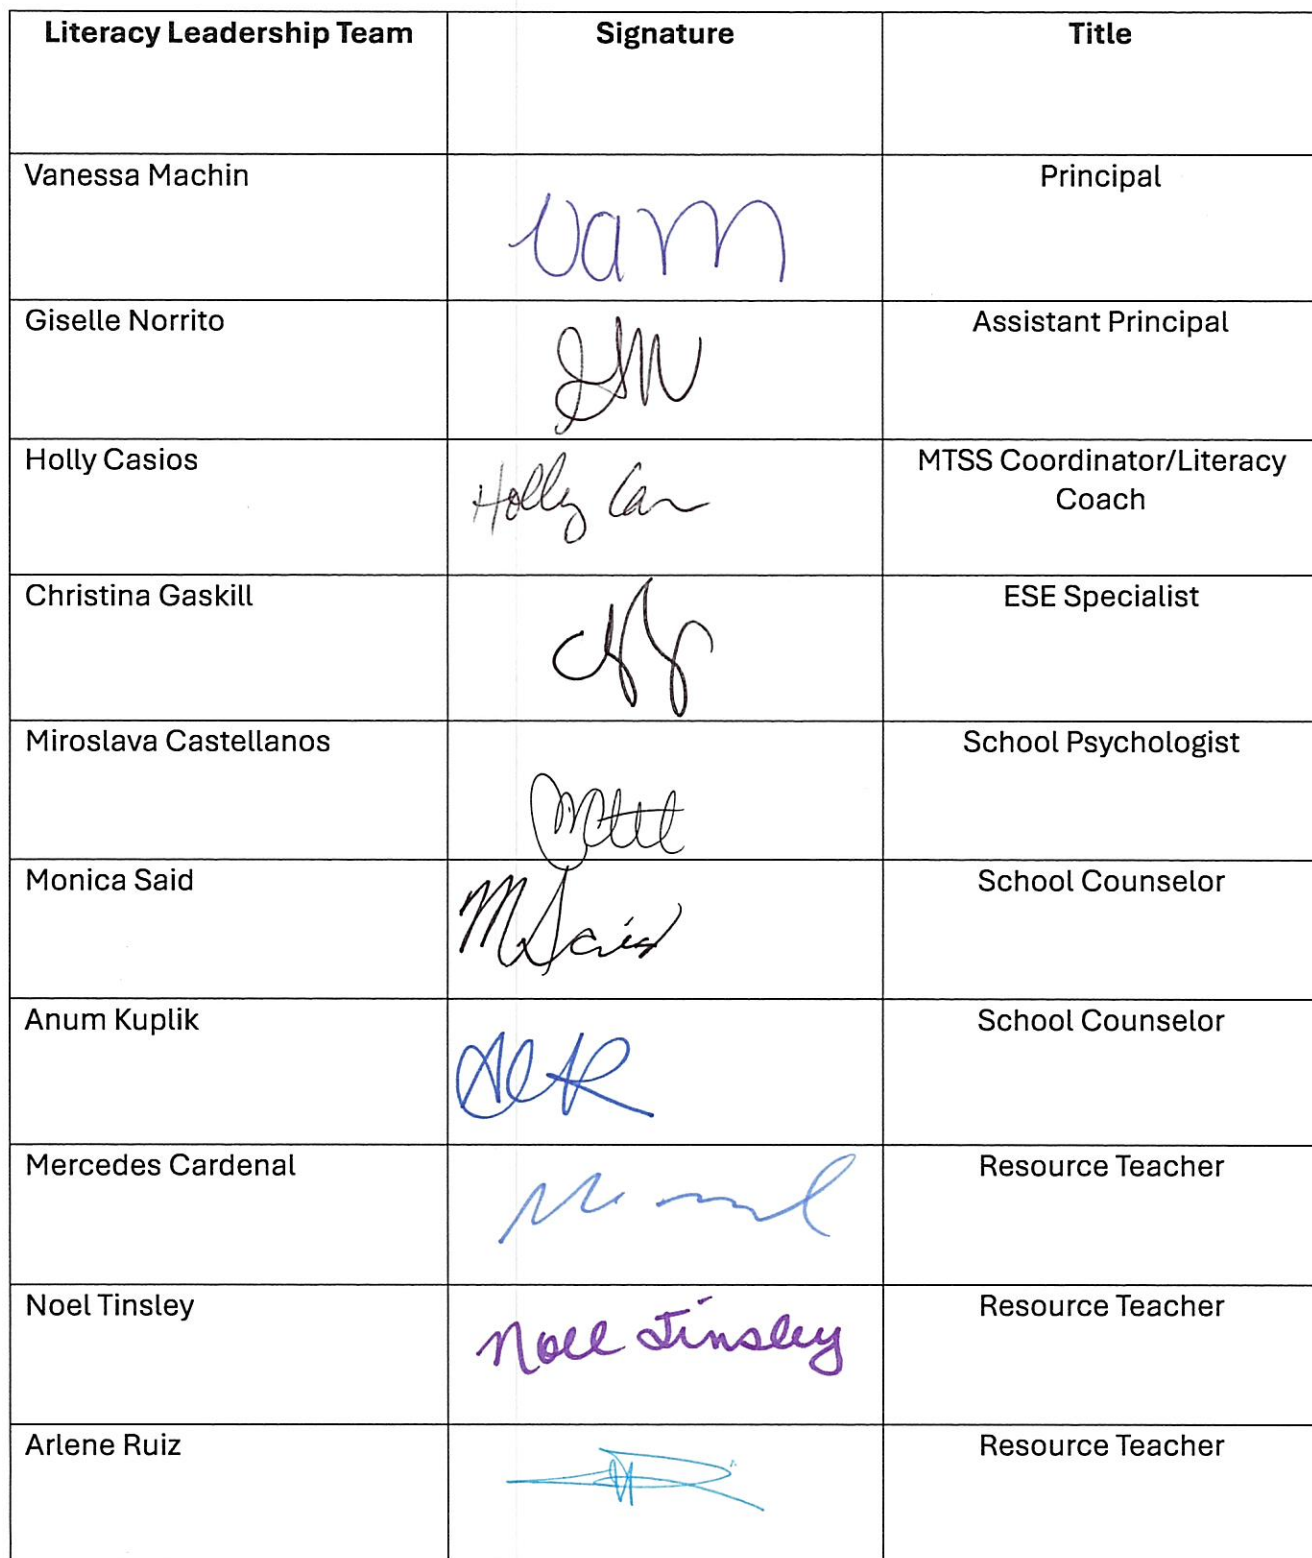 Literacy Leadership Team Signature Title
Vanessa Machin Principal
vam
Giselle Norrito Assistant Principal
GN
Holly Casios MTSS Coordinator/Literacy
Coach
Holly Cas
Christina Gaskill ESE Specialist
Miroslava Castellanos School Psychologist
Monica Said School Counselor
M Said
Anum Kuplik School Counselor
Mercedes Cardenal Resource Teacher
Noel Tinsley Resource Teacher
Noel Tinsley
Arlene Ruiz Resource Teacher